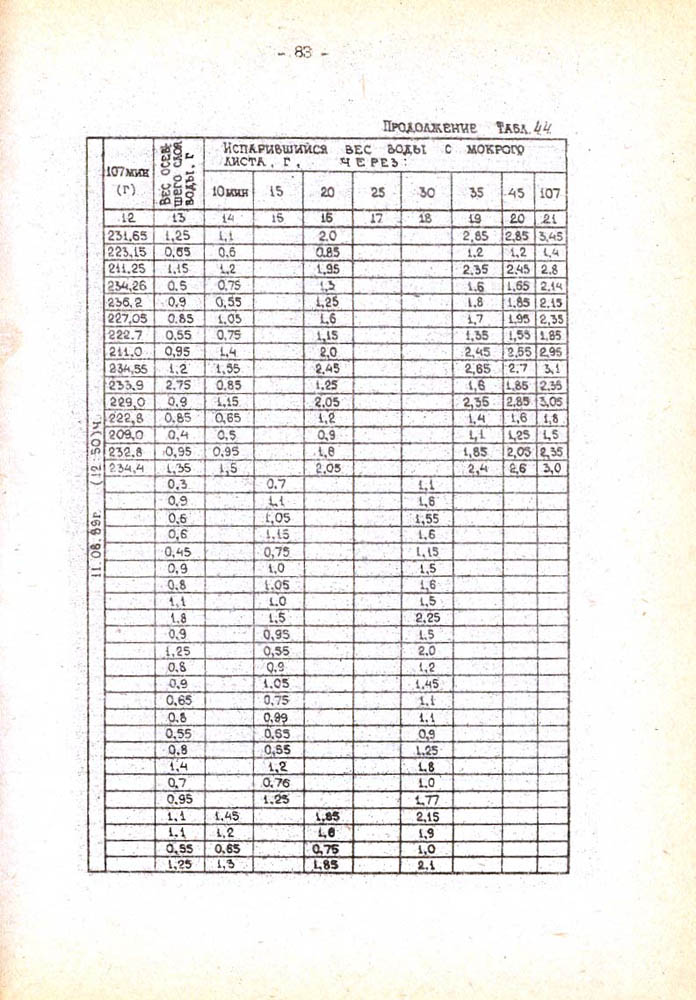 - 83 -
ПРОДОЛЖЕНИЕ ТАБЛ. 44
107 МИН (Г) ВЕС ОСЕВШЕГО СЛОЯ ВОДЫ, Г ИСПАРИВШИЙСЯ ВЕС ВОДЫ С МОКРОГО
ЛИСТА, Г, ЧЕРЕЗ:
10 МИН 15 20 25 30 35 45 107
12 13 14 15 16 17 18 19 20 21
11.08.89г. (12 50)ч.
231,65 1,25 1,1 2,0 2,65 2,85 3,45
223,15 0,65 0,6 0,85 1,2 1,2 1,4
211,25 1,15 1,2 1,95 2,35 2,45 2,8
234,26 0,5 0,75 1,3 1,6 1,65 2,14
236,2 0,9 0,55 1,25 1,8 1,85 2,15
227,05 0,85 1,05 1,6 1,7 1,95 2,35
222,7 0,55 0,75 1,15 1,35 1,55 1,85
211,0 0,95 1,4 2,0 2,45 2,55 2,95
234,55 1,2 1,55 2,45 2,65 2,7 3,1
233,9 2,75 0,85 1,25 1,6 1,85 2,35
229,0 0,9 1,15 2,05 2,35 2,85 3,05
222,8 0,85 0,65 1,2 1,4 1,6 1,8
209,0 0,4 0,5 0,9 1,1 1,25 1,5
232,8 0,95 0,95 1,8 1,85 2,05 2,35
234,4 1,35 1,5 2,05 2,4 2,6 3,0
0,3 0,7 1,1
0,9 1,1 1,6
0,6 1,05 1,55
0,6 1,15 1,6
0,45 0,75 1,15
0,9 1,0 1,5
0,8 1,05 1,6
1,1 1,0 1,5
1,8 1,5 2,25
0,9 0,95 1,5
1,25 0,55 2,0
0,8 0,9 1,2
0,9 1,05 1,45
0,65 0,75 1,1
0,8 0,99 1,1
0,55 0,65 0,9
0,8 0,55 1,25
1,4 1,2 1,8
0,7 0,76 1,0
0,95 1,25 1,77
1,1 1,45 1,85 2,15
1,1 1,2 1,6 1,9
0,55 0,65 0,75 1,0
1,25 1,3 1,85 2,1